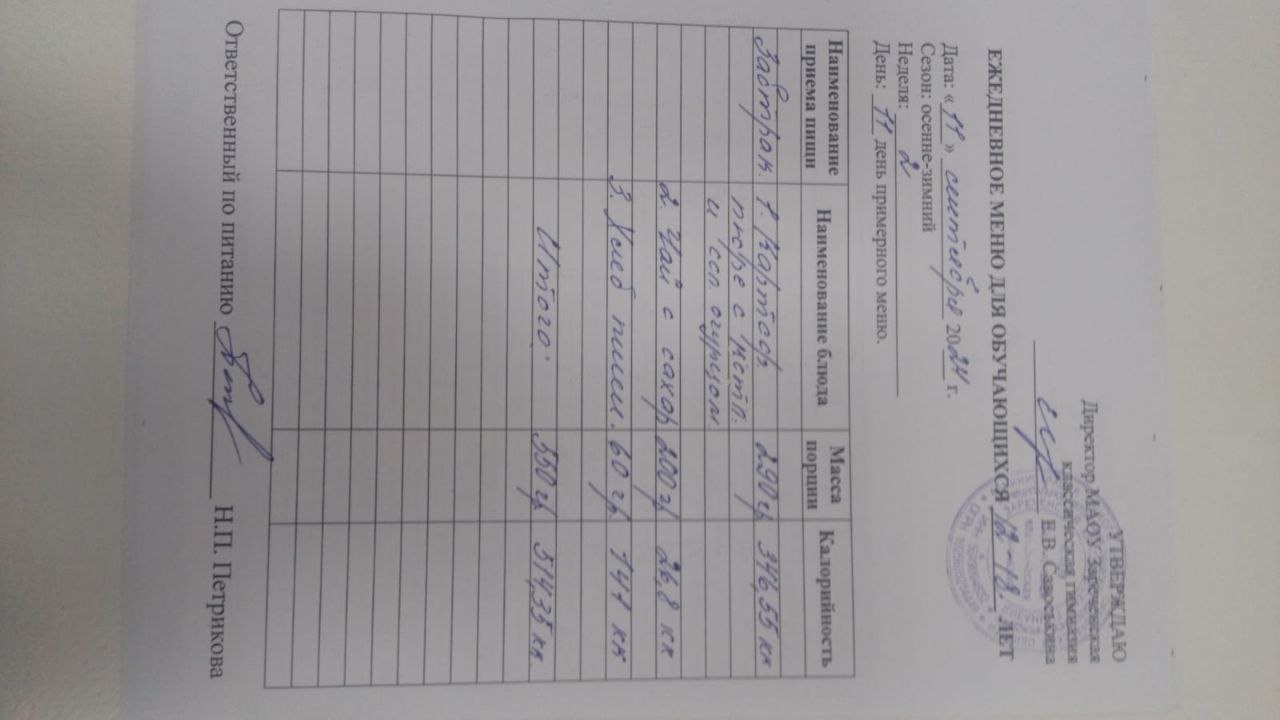 УТВЕРЖДАЮ
Директор МАОУ Зареченская
классическая гимназия
Е.В. Савоськина
ЕЖЕДНЕВНОЕ МЕНЮ ДЛЯ ОБУЧАЮЩИХСЯ 12-18. ЛЕТ
Дата: «11» сентября 2024 г.
Сезон: осенне-зимний
Неделя: 2
День: 11 день примерного меню.
Наименование приема пищи Наименование блюда Масса порции Калорийность
Завтрак. 1. Картоф. 290 гр. 346,55 кк
пюре с котл.
и сол огурцом.
2. Чай с сахар 200 гр 26,8 кк
3. Хлеб пшен. 60 гр. 141 кк
Итого: 550 гр. 514,35 кк.
Ответственный по питанию Н.П. Петрикова